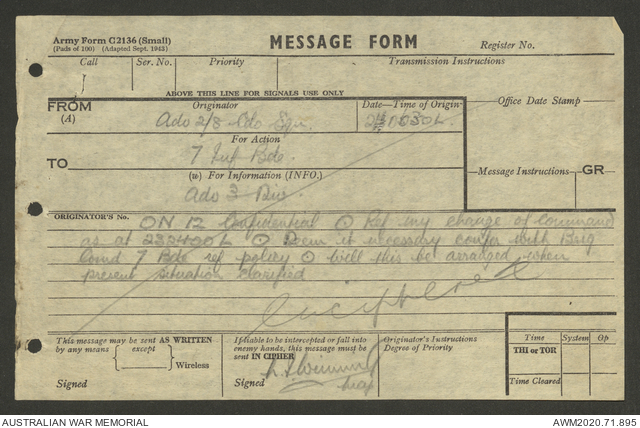 Army Form C2136 (Small)
(Pads of 100) (Adapted Sept. 1943)
MESSAGE FORM
Register No.
Call
Ser. No.
Priority
Transmission Instructions
ABOVE THIS LINE FOR SIGNALS USE ONLY
FROM
(A)
Originator
Date—Time of Origin
Office Date Stamp
Adv 2/8 Cdo Sqn.
1530L
For Action
TO
7 Inf Bde.
Message Instructions
GR
(W) For Information (INFO.)
Adv 3 Div
ORIGINATOR'S No.
ON 12 Confidential ⊙ Ref my change of Command
as at 233400L ⊙ Deem it necessary confer with Brig
Comd 7 Bde ref policy ⊙ Will this be arranged when
present situation clarified
This message may be sent AS WRITTEN
by any means
except
Wireless
Signed
If liable to be intercepted or fall into
enemy hands, this message must be
sent IN CIPHER
Signed
Originator's Instructions
Degree of Priority
Time
System
Op
THI or TOR
Time Cleared
AUSTRALIAN WAR MEMORIAL
AWM2020.71.895